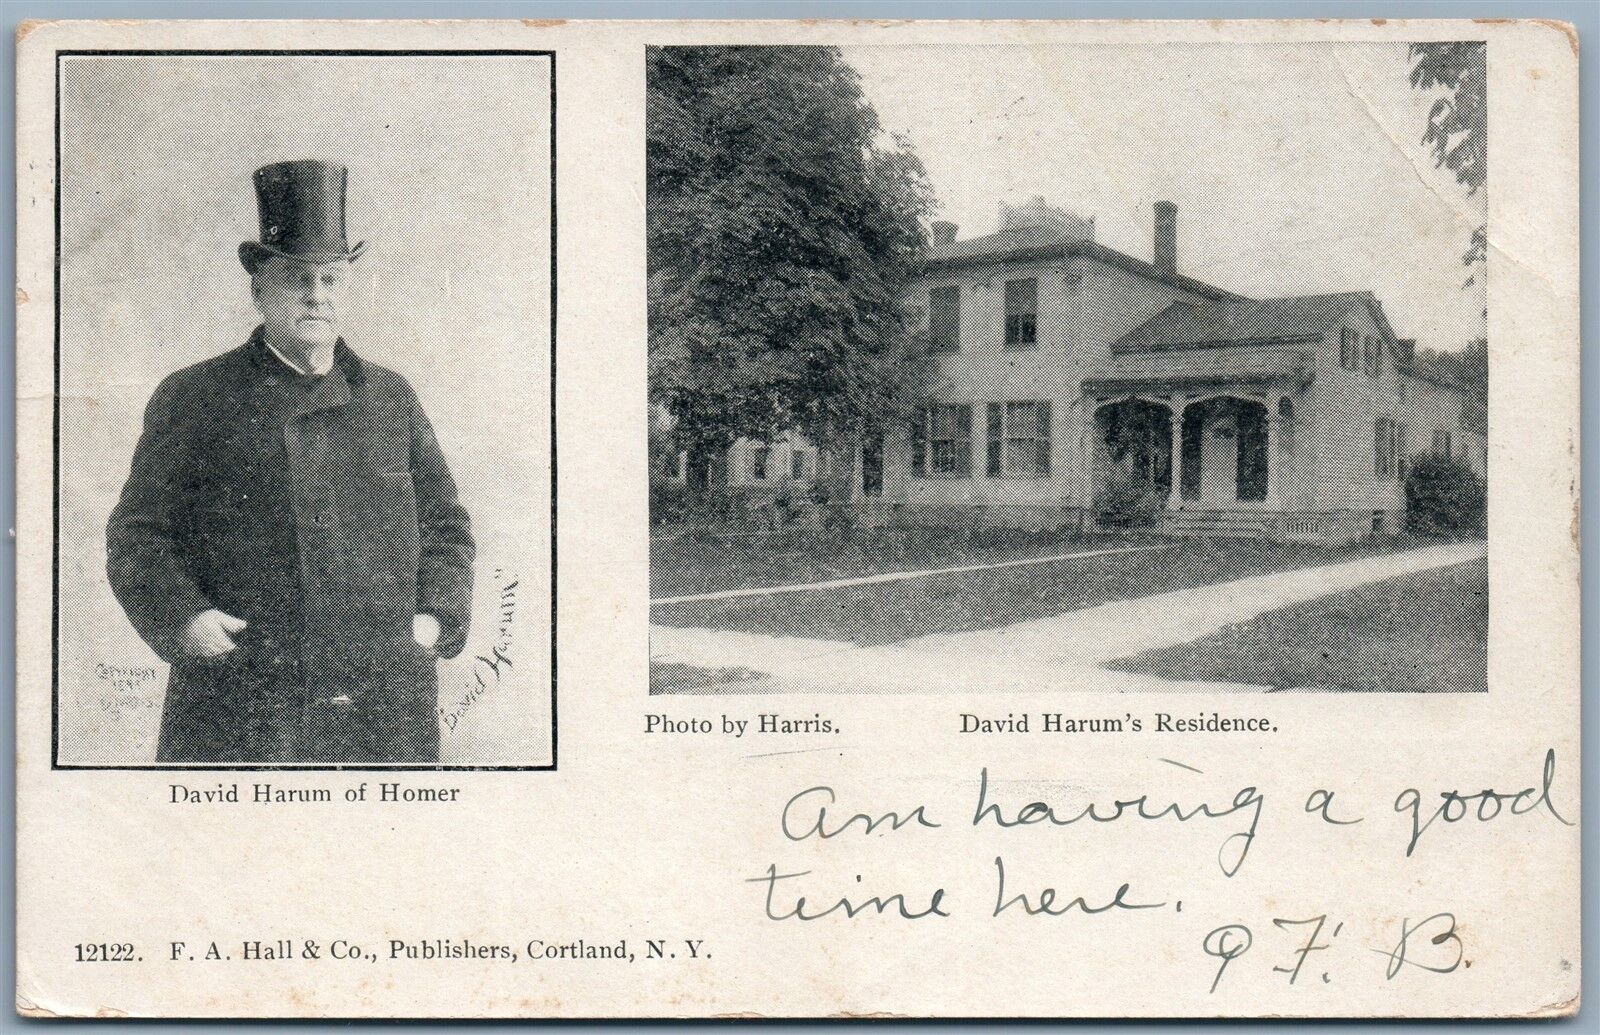 "David Harum"
David Harum of Homer
Photo by Harris.
David Harum's Residence.
Am having a good
time here.
F. B.
12122. F. A. Hall & Co., Publishers, Cortland, N. Y.